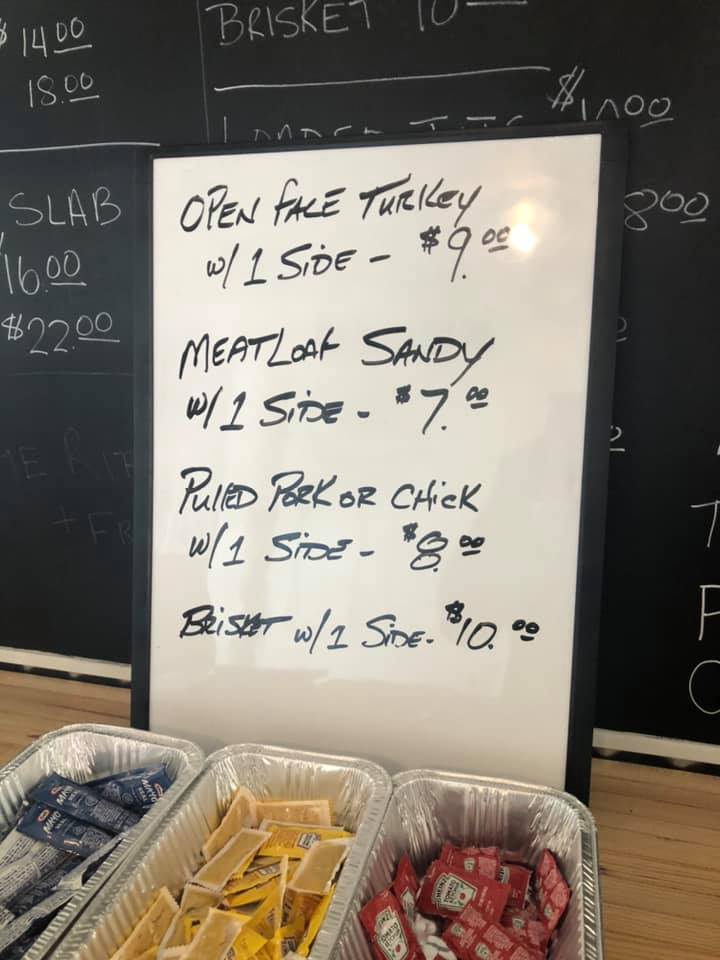 $14.00
18.00
BRISKET 10—
$
SLAB
16.00
$22.00
800
OPEN FACE TURKEY
w/ 1 SIDE - $9.00
MEATLOAF SANDY
w/ 1 SIDE - $7.00
PULLED PORK OR CHICK
w/ 1 SIDE - $8.00
BRISKET w/ 1 SIDE - $10.00
MAYO
HEINZ
TOMATO
KETCHUP